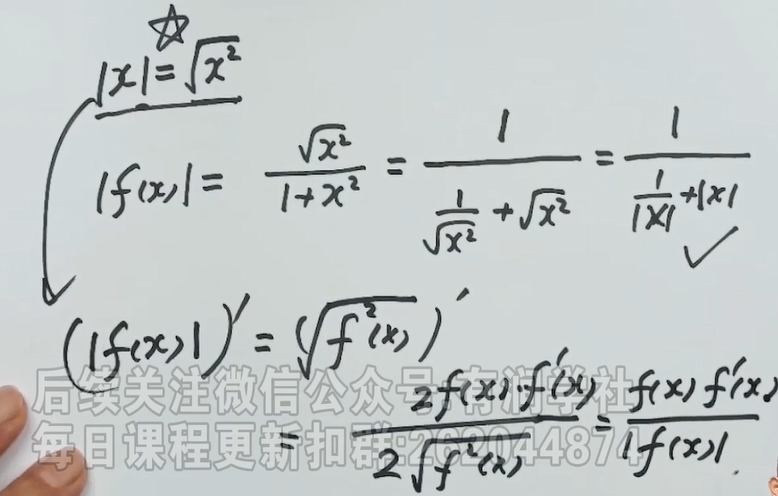 ☆
|x| = √x²
|f(x)| = √x² / (1+x²) = 1 / (1/√x² + √x²) = 1 / (1/|x| + |x|) ✓
(|f(x)|)' = (√f²(x))'
= 2f(x)·f'(x) / 2√f²(x) = f(x)f'(x) / |f(x)|
后续关注微信公众号
每日课程更新扣群:262044874